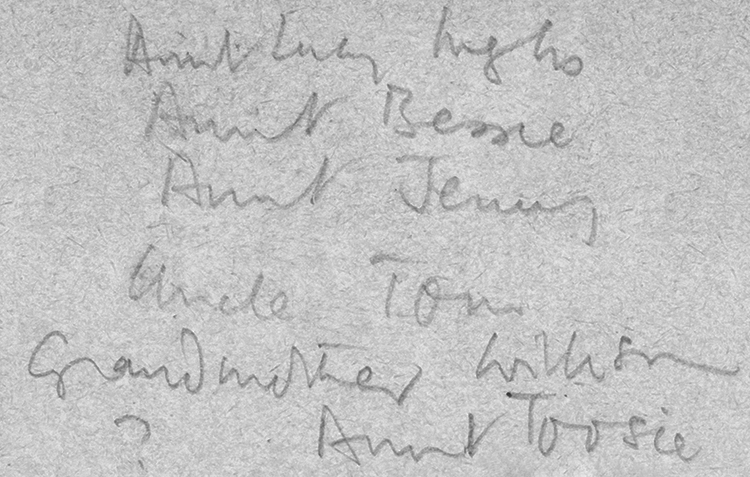 Aunt Lucy
Aunt Bessie
Aunt Jenny
Uncle Tom
Grandmother
? Aunt Toosie